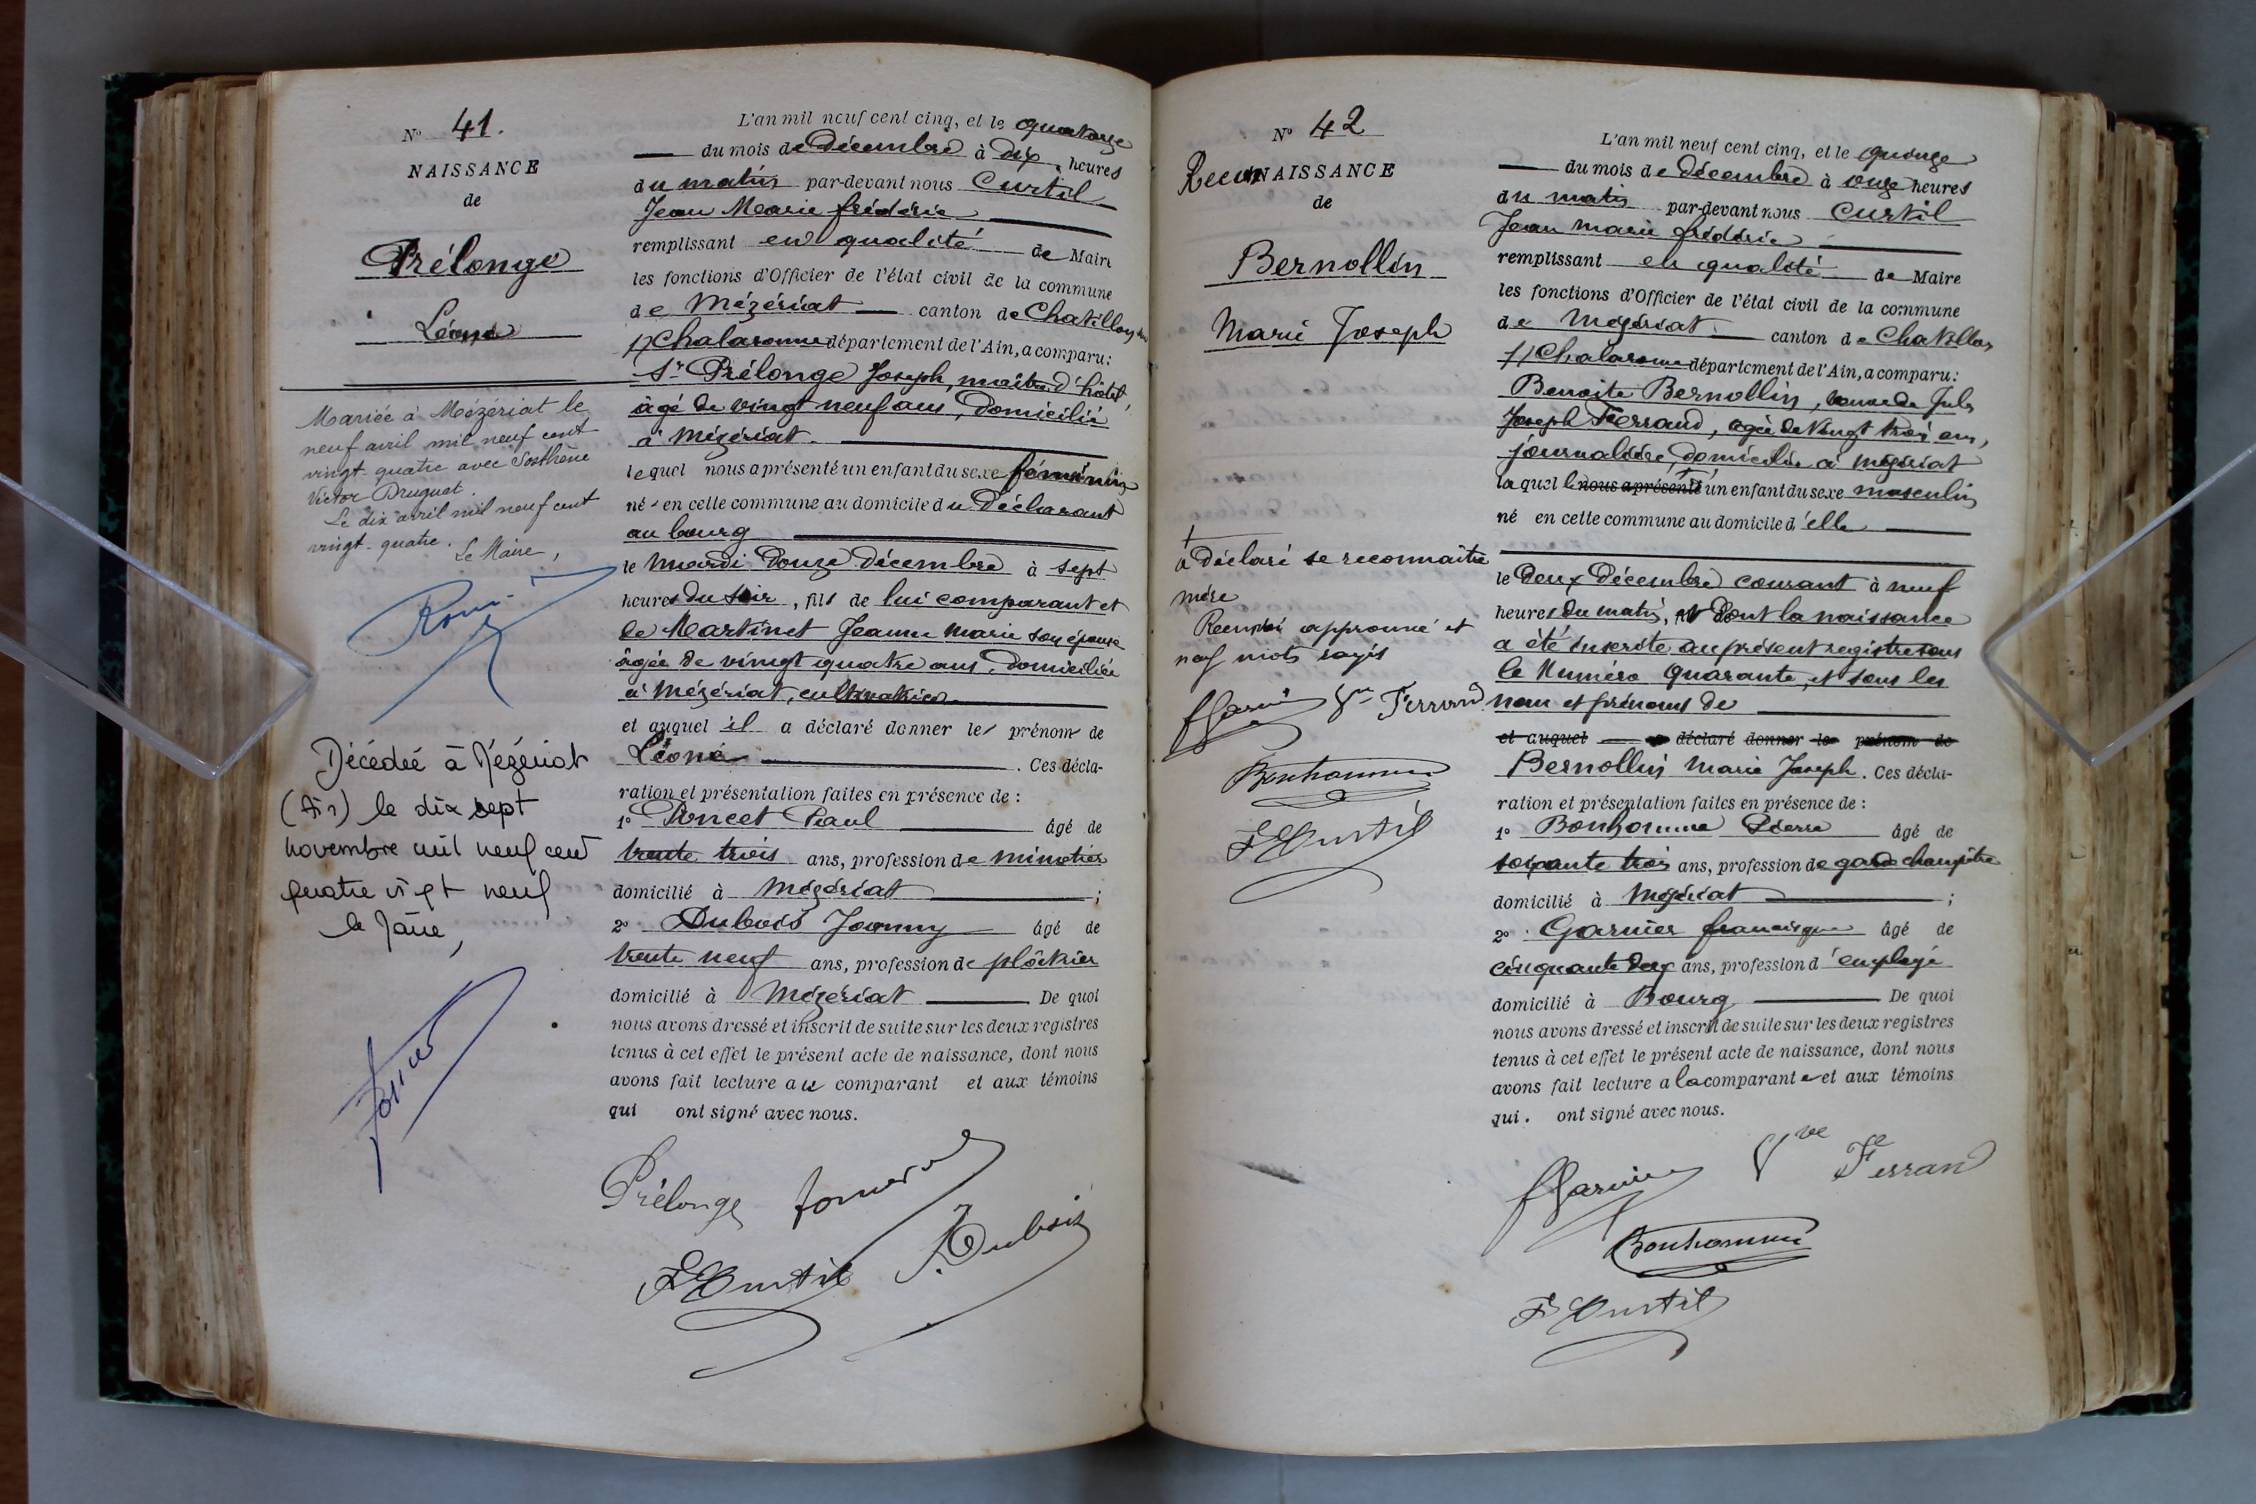 N° 41.
NAISSANCE
de
Prélonge
Léone
Mariée à Mézériat le
neuf avril mil neuf cent
vingt-quatre avec Sosthène
Victor Druguet.
Le dix avril mil neuf cent
vingt-quatre.
Le Maire,
Décédée à Mézériat
(Ain) le dix sept
novembre mil neuf cent
quatre vingt neuf
le Maire,
L'an mil neuf cent cinq, et le quatorze
du mois de Décembre à dix heures
du matin par-devant nous Curtil
Jean Marie frédéric
remplissant en qualité de Maire
les fonctions d'Officier de l'état civil de la commune
de Mézériat canton de Chatillon sur
Chalaronne département de l'Ain, a comparu:
Sr Prélonge Joseph, maître d'hôtel,
âgé de vingt neuf ans, domicilié
à Mézériat.
lequel nous a présenté un enfant du sexe féminin
né en cette commune au domicile du Déclarant
au bourg
le mardi douze Décembre à sept
heures du soir, fils de lui comparant et
de Martinet Jeanne Marie son épouse
âgée de vingt quatre ans, domiciliée
à Mézériat, cultivatrice
et auquel il a déclaré donner le prénom de
Léone . Ces décla-
ration et présentation faites en présence de :
1° Poncet Paul âgé de
trente trois ans, profession de minotier
domicilié à Mézériat ;
2° Dubois Joanny âgé de
trente neuf ans, profession de plâtrier
domicilié à Mézériat De quoi
nous avons dressé et inscrit de suite sur les deux registres
tenus à cet effet le présent acte de naissance, dont nous
avons fait lecture au comparant et aux témoins
qui ont signé avec nous.
Prélonge
F Curtil J. Dubois
N° 42
ReconNAISSANCE
de
Bernollin
Marie Joseph
a déclaré se reconnaître
mère
Renvoi approuvé et
neuf mots rayés
fGarnier Vve Ferrand
Bonhomme
F Curtil
L'an mil neuf cent cinq, et le quinze
du mois de décembre à onze heures
du matin par-devant nous Curtil
Jean marie frédéric
remplissant en qualité de Maire
les fonctions d'Officier de l'état civil de la commune
de Mézériat canton de Chatillon
s/ Chalaronne département de l'Ain, a comparu:
Benoite Bernollin, veuve de Jules
Joseph Ferrand, agée de vingt trois ans,
journalière, domiciliée à Mézériat
laquelle nous a présenté un enfant du sexe masculin
né en cette commune au domicile d'elle
le Deux Décembre courant à neuf
heures du matin, et dont la naissance
a été inscrite au présent registre sous
le Numéro quarante, et sous les
nom et prénoms de
et auquel a déclaré donner le prénom de
Bernollin Marie Joseph. Ces décla-
ration et présentation faites en présence de :
1° Bonhomme Pierre âgé de
soixante trois ans, profession de garde champêtre
domicilié à Mézériat ;
2° Garnier francisque âgé de
cinquante deux ans, profession d'employé
domicilié à Bourg De quoi
nous avons dressé et inscrit de suite sur les deux registres
tenus à cet effet le présent acte de naissance, dont nous
avons fait lecture a la comparante et aux témoins
qui . ont signé avec nous.
fGarnier Vve Ferrand
Bonhomme
F Curtil